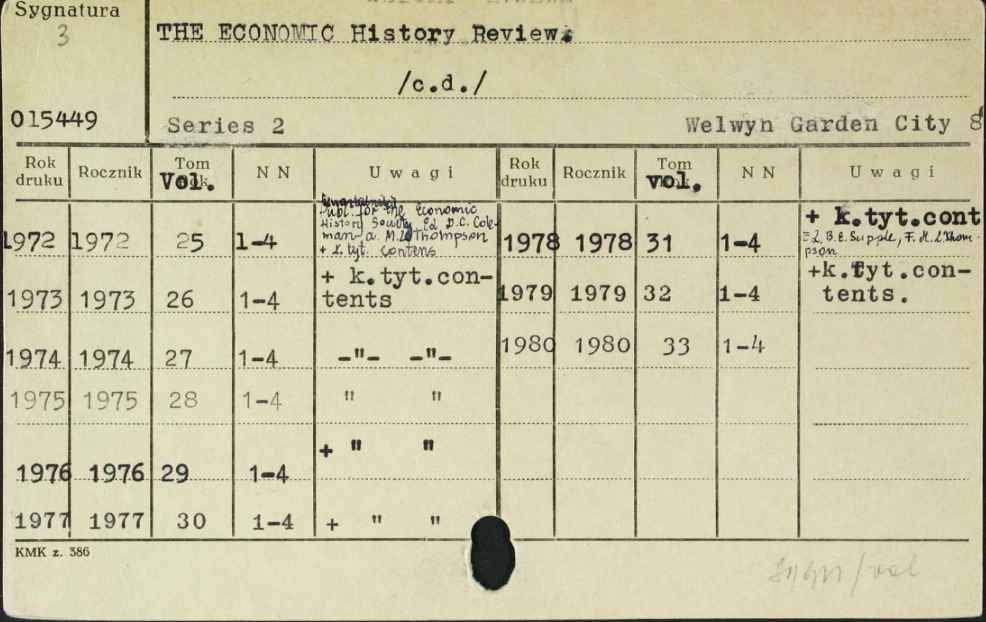 Sygnatura
3
THE ECONOMIC History Review.
/c.d./
015449
Series 2
Welwyn Garden City 8°
Rok druku Rocznik Tom Vol. NN Uwagi Rok druku Rocznik Tom vol. NN Uwagi
Publ. for the Economic
History Society Ed D.C. Cole-
man a. M.L. Thompson
+ k. tyt. contens
1972 1972 25 1-4
+ k.tyt.cont
Ed. B.E. Supple, F. M. L Thom-
pson
1978 1978 31 1-4
1973 1973 26 1-4 + k.tyt.con-
tents
1979 1979 32 1-4 +k.tyt.con-
tents.
1974 1974 27 1-4 -"- -"-
1980 1980 33 1-4
1975 1975 28 1-4 " "
1976 1976 29 1-4 + " "
1977 1977 30 1-4 + " "
KMK z. 386